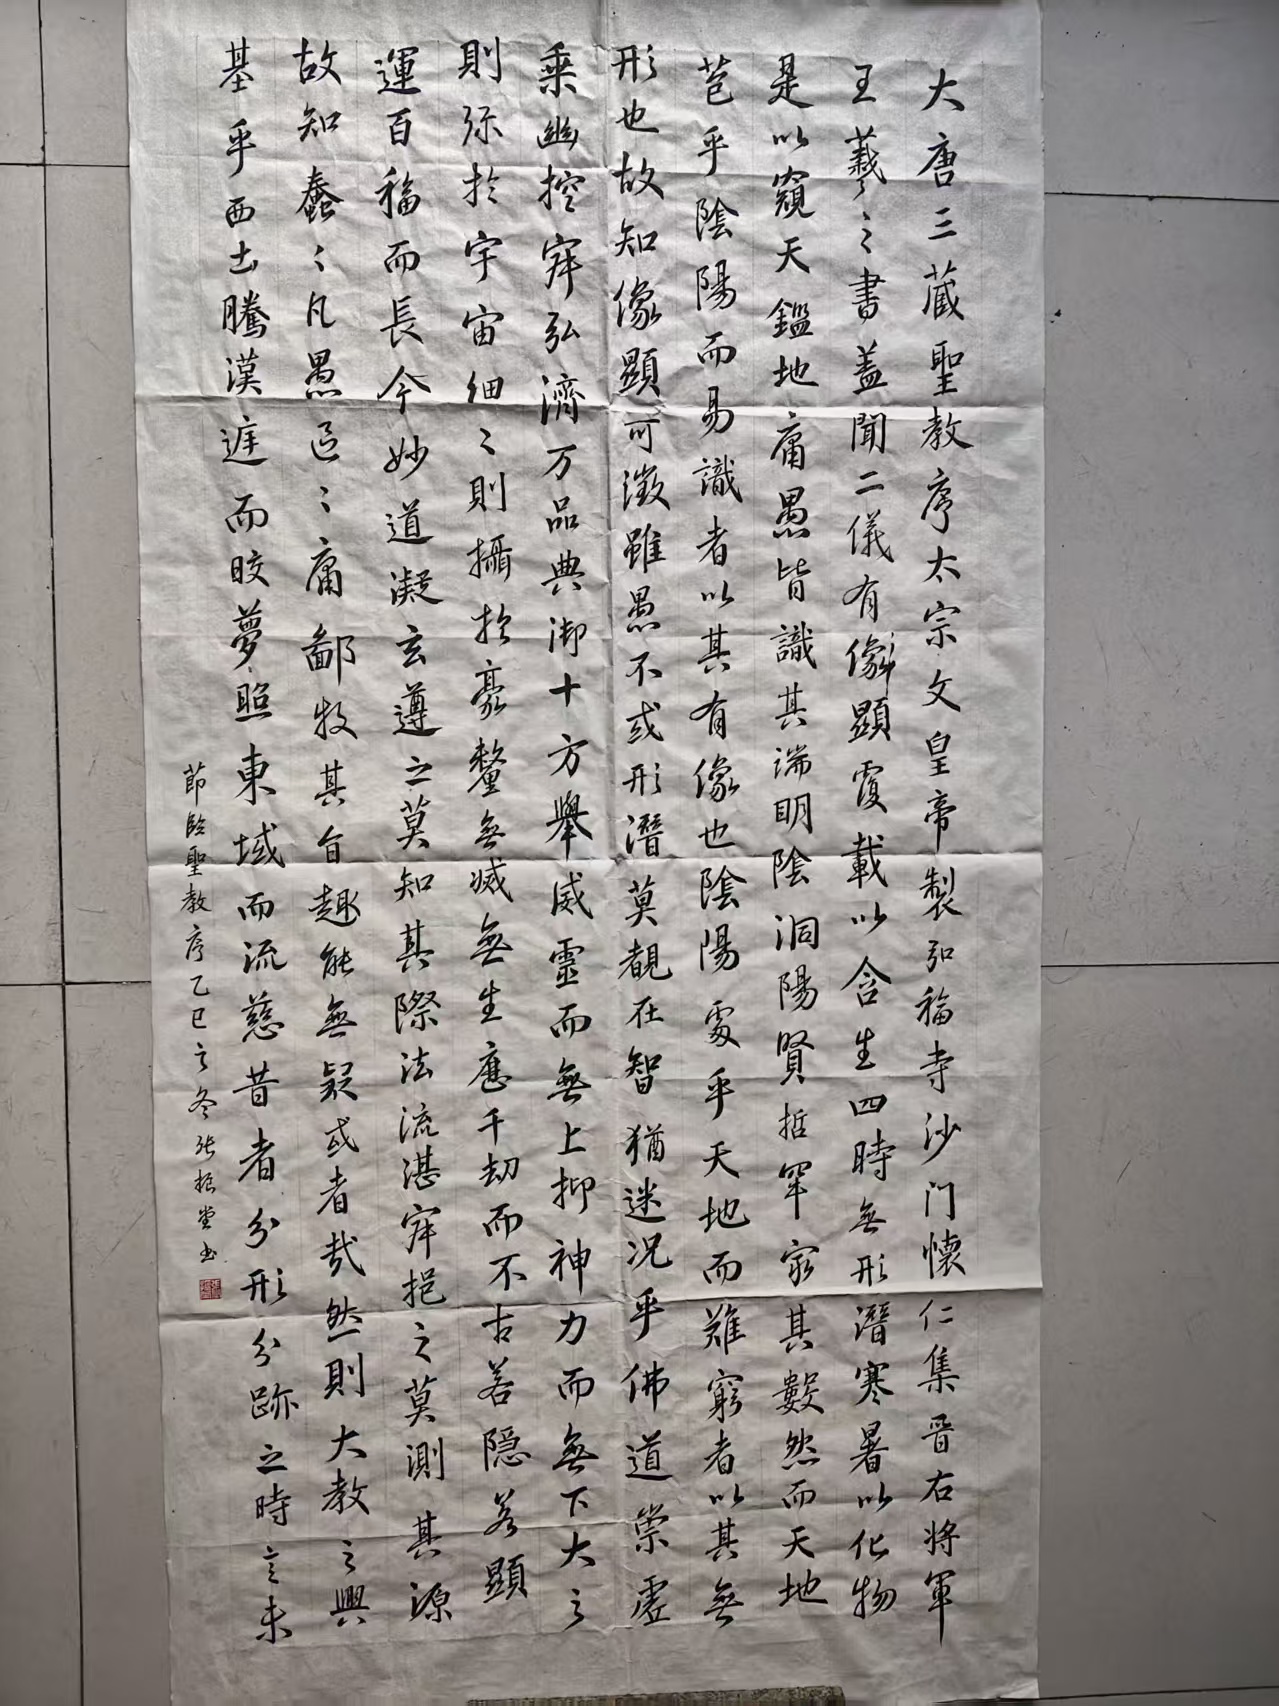 大唐三藏聖教序太宗文皇帝製弘福寺沙门懷仁集晋右将軍
王羲之書蓋聞二儀有像顯覆載以含生四時無形潛寒暑以化物
是以窺天鑑地庸愚皆識其端明陰洞陽賢哲罕窮其數然而天地
苞乎陰陽而易識者以其有像也陰陽處乎天地而難窮者以其無
形也故知像顯可徵雖愚不或形潛莫覩在智猶迷况乎佛道崇虛
乘幽控寂弘濟万品典御十方舉威靈而無上抑神力而無下大之
則弥於宇宙細之則攝於豪釐無滅無生應千劫而不古若隐若顯
運百福而長今妙道凝玄遵之莫知其際法流湛寂挹之莫測其源
故知蠢〻凡愚區〻庸鄙投其旨趣能無疑或者哉然則大教之興
基乎西土騰漢庭而晈夢照東域而流慈昔者分形分跡之時言未
節臨聖教序乙巳之冬张振堂书